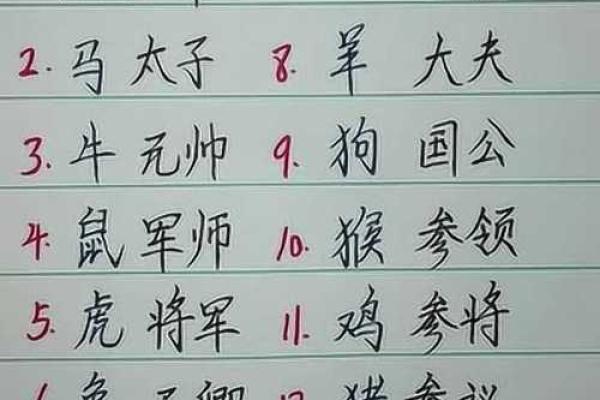 2. 马 太子 8. 羊 大夫
3. 牛 元帅 9. 狗 国公
4. 鼠 军师 10. 猴 参领
5. 虎 将军 11. 鸡 参将